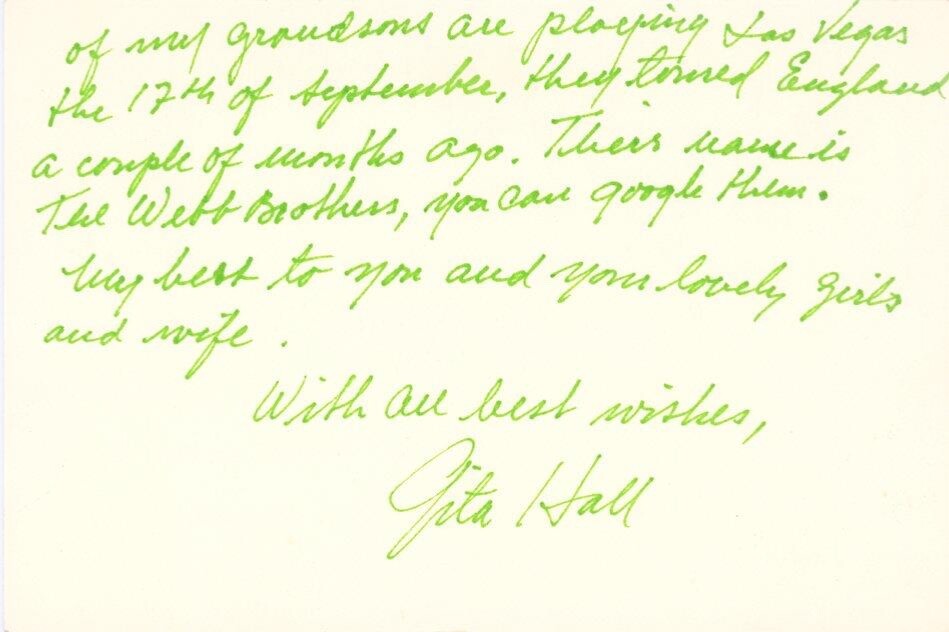 of my grandsons are playing Las Vegas
the 17th of September, they toured England
a couple of months ago. Their name is
The Webb Brothers, you can google them.
My best to you and your lovely girls
and wife.
With all best wishes,
Gita Hall